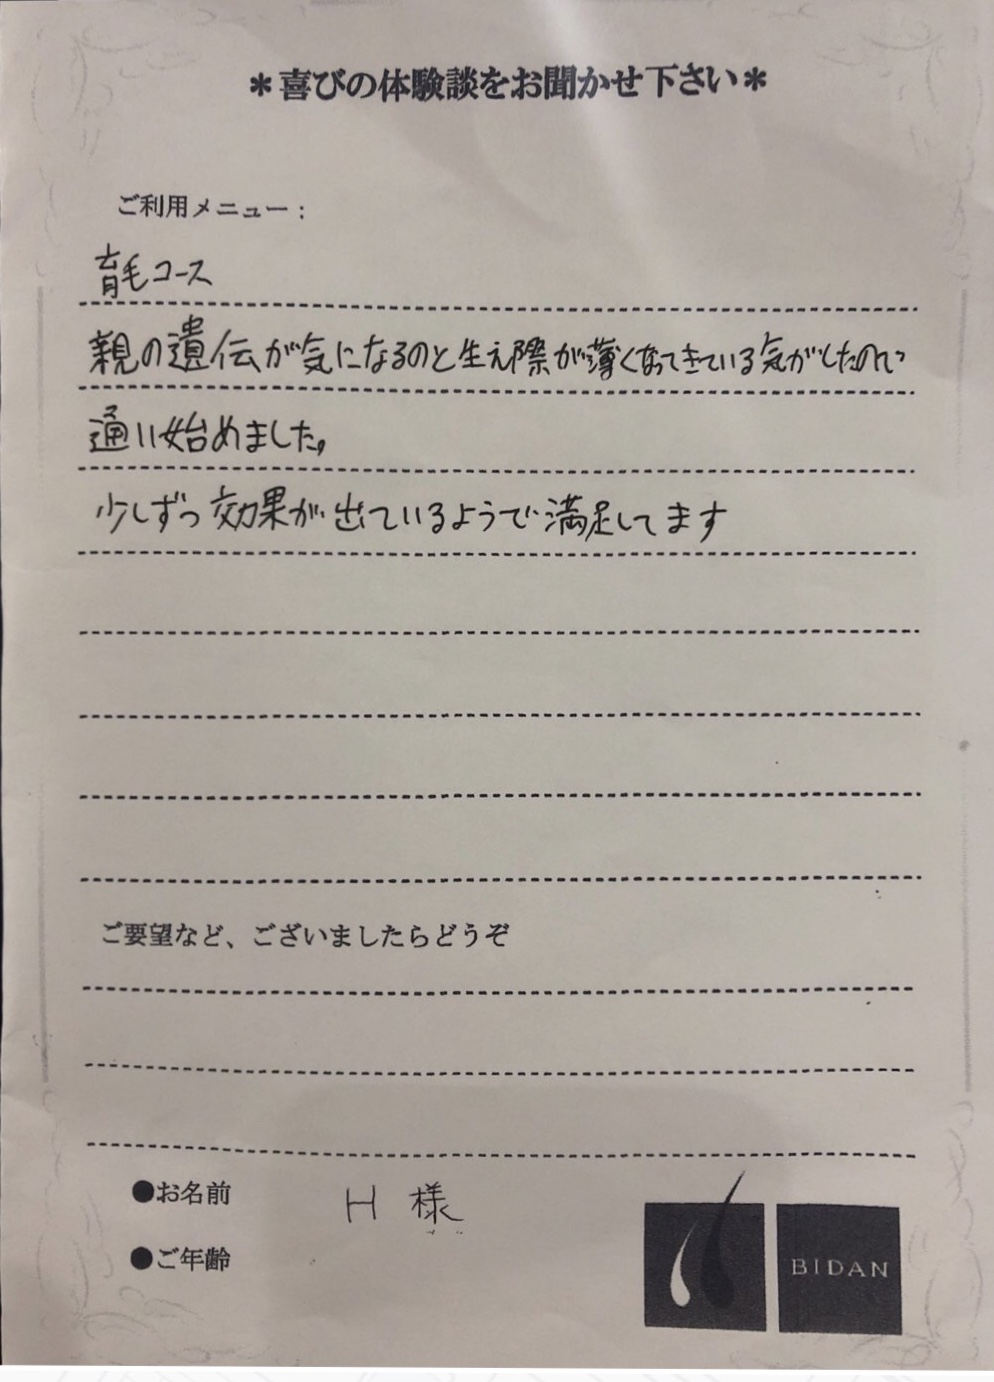 ＊喜びの体験談をお聞かせ下さい＊
ご利用メニュー：
育毛コース
親の遺伝が気になるのと生え際が薄くなってきている気がしたので
通い始めました。
少しずつ効果が出ているようで満足してます
ご要望など、ございましたらどうぞ
●お名前 H 様
●ご年齢
BIDAN